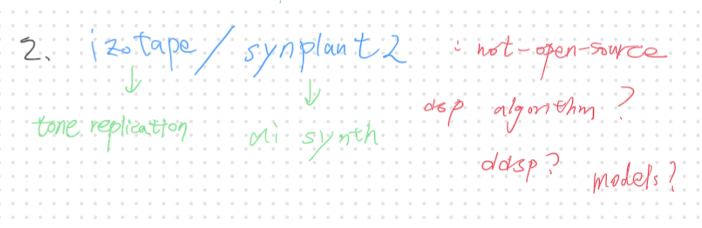 2. izotape / synplant2 : not-open-source
tone replication
ai synth
dsp algorithm ?
ddsp ?
models ?